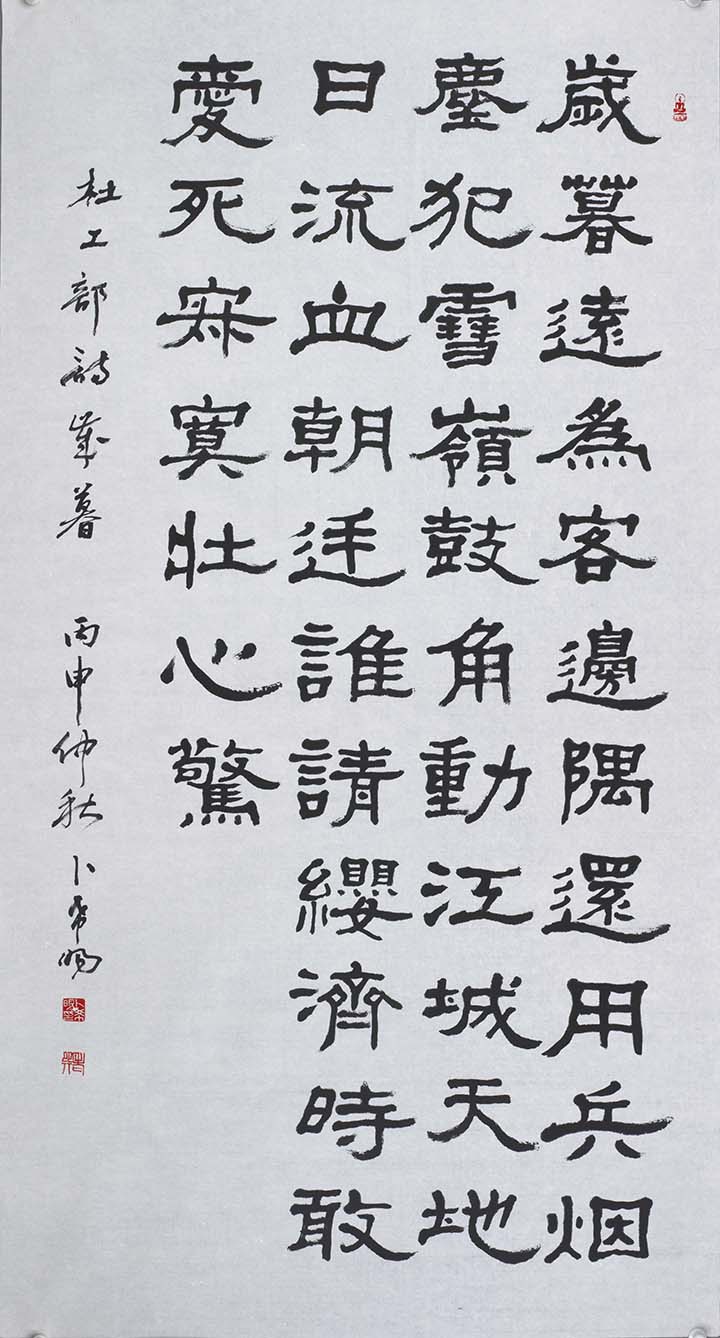 歲暮遠為客邊隅還用兵烟
塵犯雪嶺鼓角動江城天地
日流血朝廷誰請纓濟時敢
愛死寂寞壯心驚
杜工部詩歲暮 丙申仲秋 卜希暘